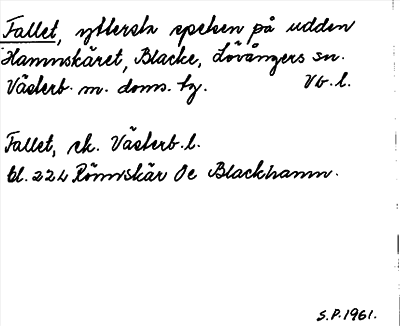 Fallet, yttersta spetsen på udden
Hamnskäret, Blacke, Lövångers sn.
Västerb. m. doms. tg. Vb. l.
Fallet, ek. Västerb. l.
bl. 224 Rönnskär Oe Blackhamn.
S.P. 1961.